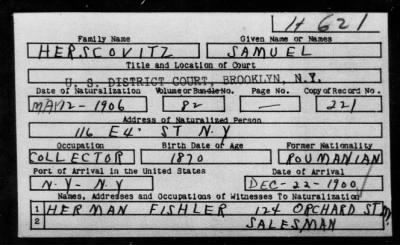 H 621
Family Name Given Name or Names
HERSCOVITZ SAMUEL
Title and Location of Court
U. S. DISTRICT COURT, BROOKLYN, N.Y.
Date of Naturalization Volume or Bundle No. Page No. Copy of Record No.
MAY 12 - 1906 82 — 221
Address of Naturalized Person
116 E 4. ST N.Y
Occupation Birth Date or Age Former Nationality
COLLECTOR 1870 ROUMANIAN
Port of Arrival in the United States Date of Arrival
N-Y- N-Y DEC-22-1900
Names, Addresses and Occupations of Witnesses To Naturalization
1 HERMAN FISHLER 124 ORCHARD ST
2 SALESMAN